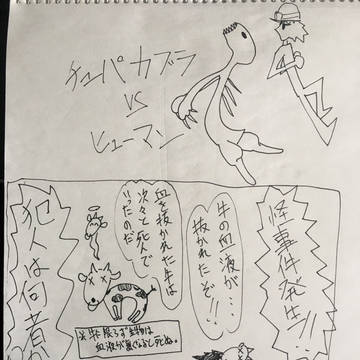 チューパカブラ
VS
ヒューマン
怪事件発生!!
牛の血液が‥
抜かれたぞ!!
血を抜かれた牛は
次々と死んで
いったのだ
※牛に限らず生物は
血液が無くなると死ぬ。
犯人は何者か